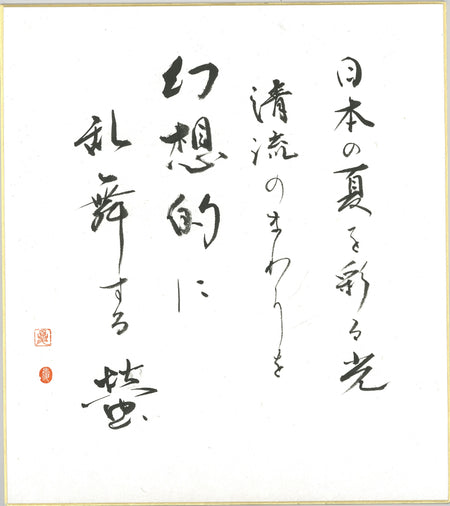 日本の夏を彩る光
清流のまわりを
幻想的に
乱舞する螢